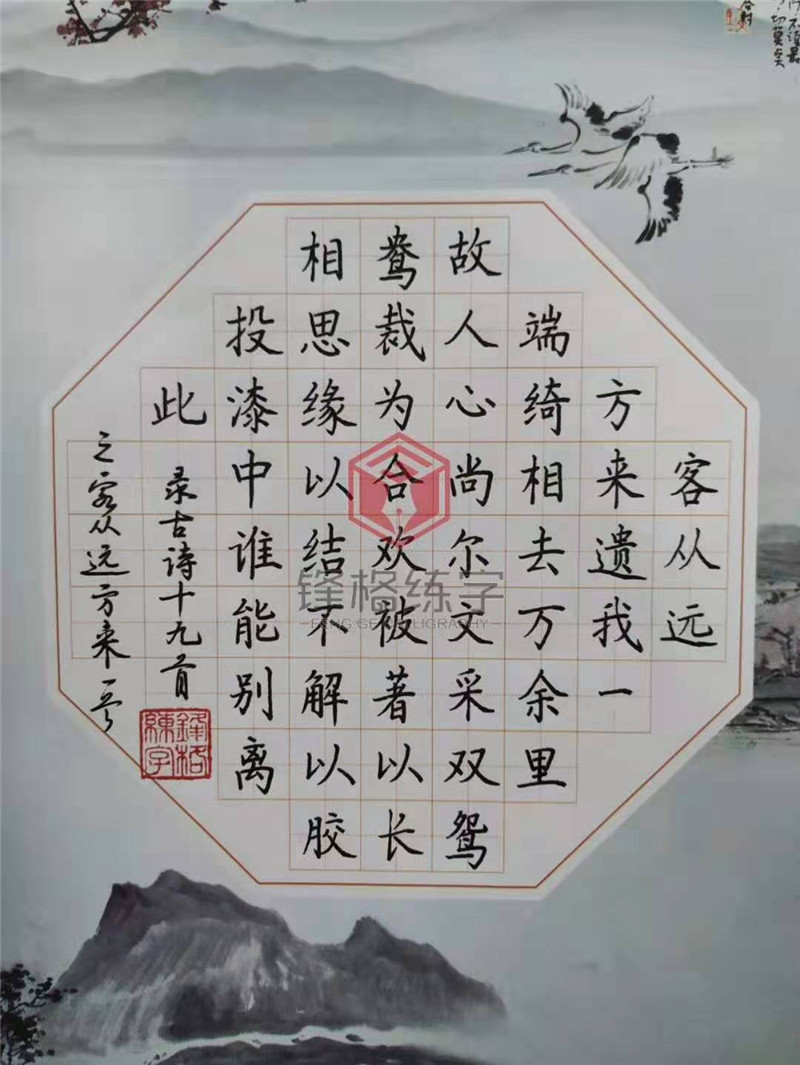 客从远
方来遗我一
端绮相去万余里
故人心尚尔文采双鸳
鸯裁为合欢被著以长
相思缘以结不解以胶
投漆中谁能别离
此
录古诗十九首
之客从远方来一首
鋒格練字
锋格练字
FENG GE CALLIGRAPHY